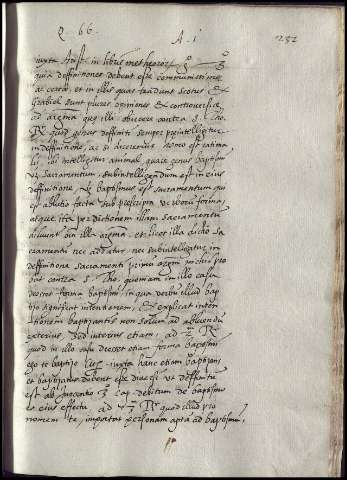 Q. 66. A. 1 232
iuxta Arist. in libris metheoror.
quia deffinitiones debent esse communissimae
ac certae, et in illis quas tradunt Scotus et
Gabriel sunt plures opiniones et controversiae,
ad argum. que illi obiicere contra S. Tho.
R. quod genus deffiniti semper preintelligitur
in deffinitione, ac si diceremus homo est rationa
lis, ibi intelligitur animal, quare genus baptismi
vz sacramentum, subintelligendum est in eius
deffinitione, vz baptismus est sacramentum qui
est ablutio facta sub prescripta verborum forma,
atque ita per dictionem illam sacramentum
argum. et licet illa dictio sa
cramentum nec addatur, nec subintelligatur in
deffinitione sacramenti primum argum. nichil pro
bat contra S. Tho. quoniam in illo casu
deesset forma baptismi, in qua verbum illud bap
tizo significat intentionem, et explicat inten
tionem baptizantis non solum ad abluendum
exterius, sed interius etiam, ad 2m R.
quod in illo casu deesset etiam forma baptismi
ego te baptizo iuxta hanc etiam baptizans
et baptizatus debent esse diversi ut deffinitum
est ab Innocentio 3 cap. debitum de baptismo
et eius effectu, ad R. quod illud pro
nomen te, importat personam aptam ad baptismum,